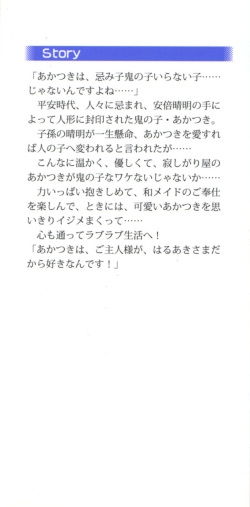 Story
「あかつきは、忌み子鬼の子いらない子……
じゃないんですよね……」
　平安時代、人々に忌まれ、安倍晴明の手に
よって人形に封印された鬼の子・あかつき。
　子孫の晴明が一生懸命、あかつきを愛すれ
ば人の子へ変われると言われたが……
　こんなに温かく、優しくて、寂しがり屋の
あかつきが鬼の子なワケないじゃないか……
　力いっぱい抱きしめて、和メイドのご奉仕
を楽しんで、ときには、可愛いあかつきを思
いきりイジメまくって……
　心も通ってラブラブ生活へ！
「あかつきは、ご主人様が、はるあきさまだ
から好きなんです！」